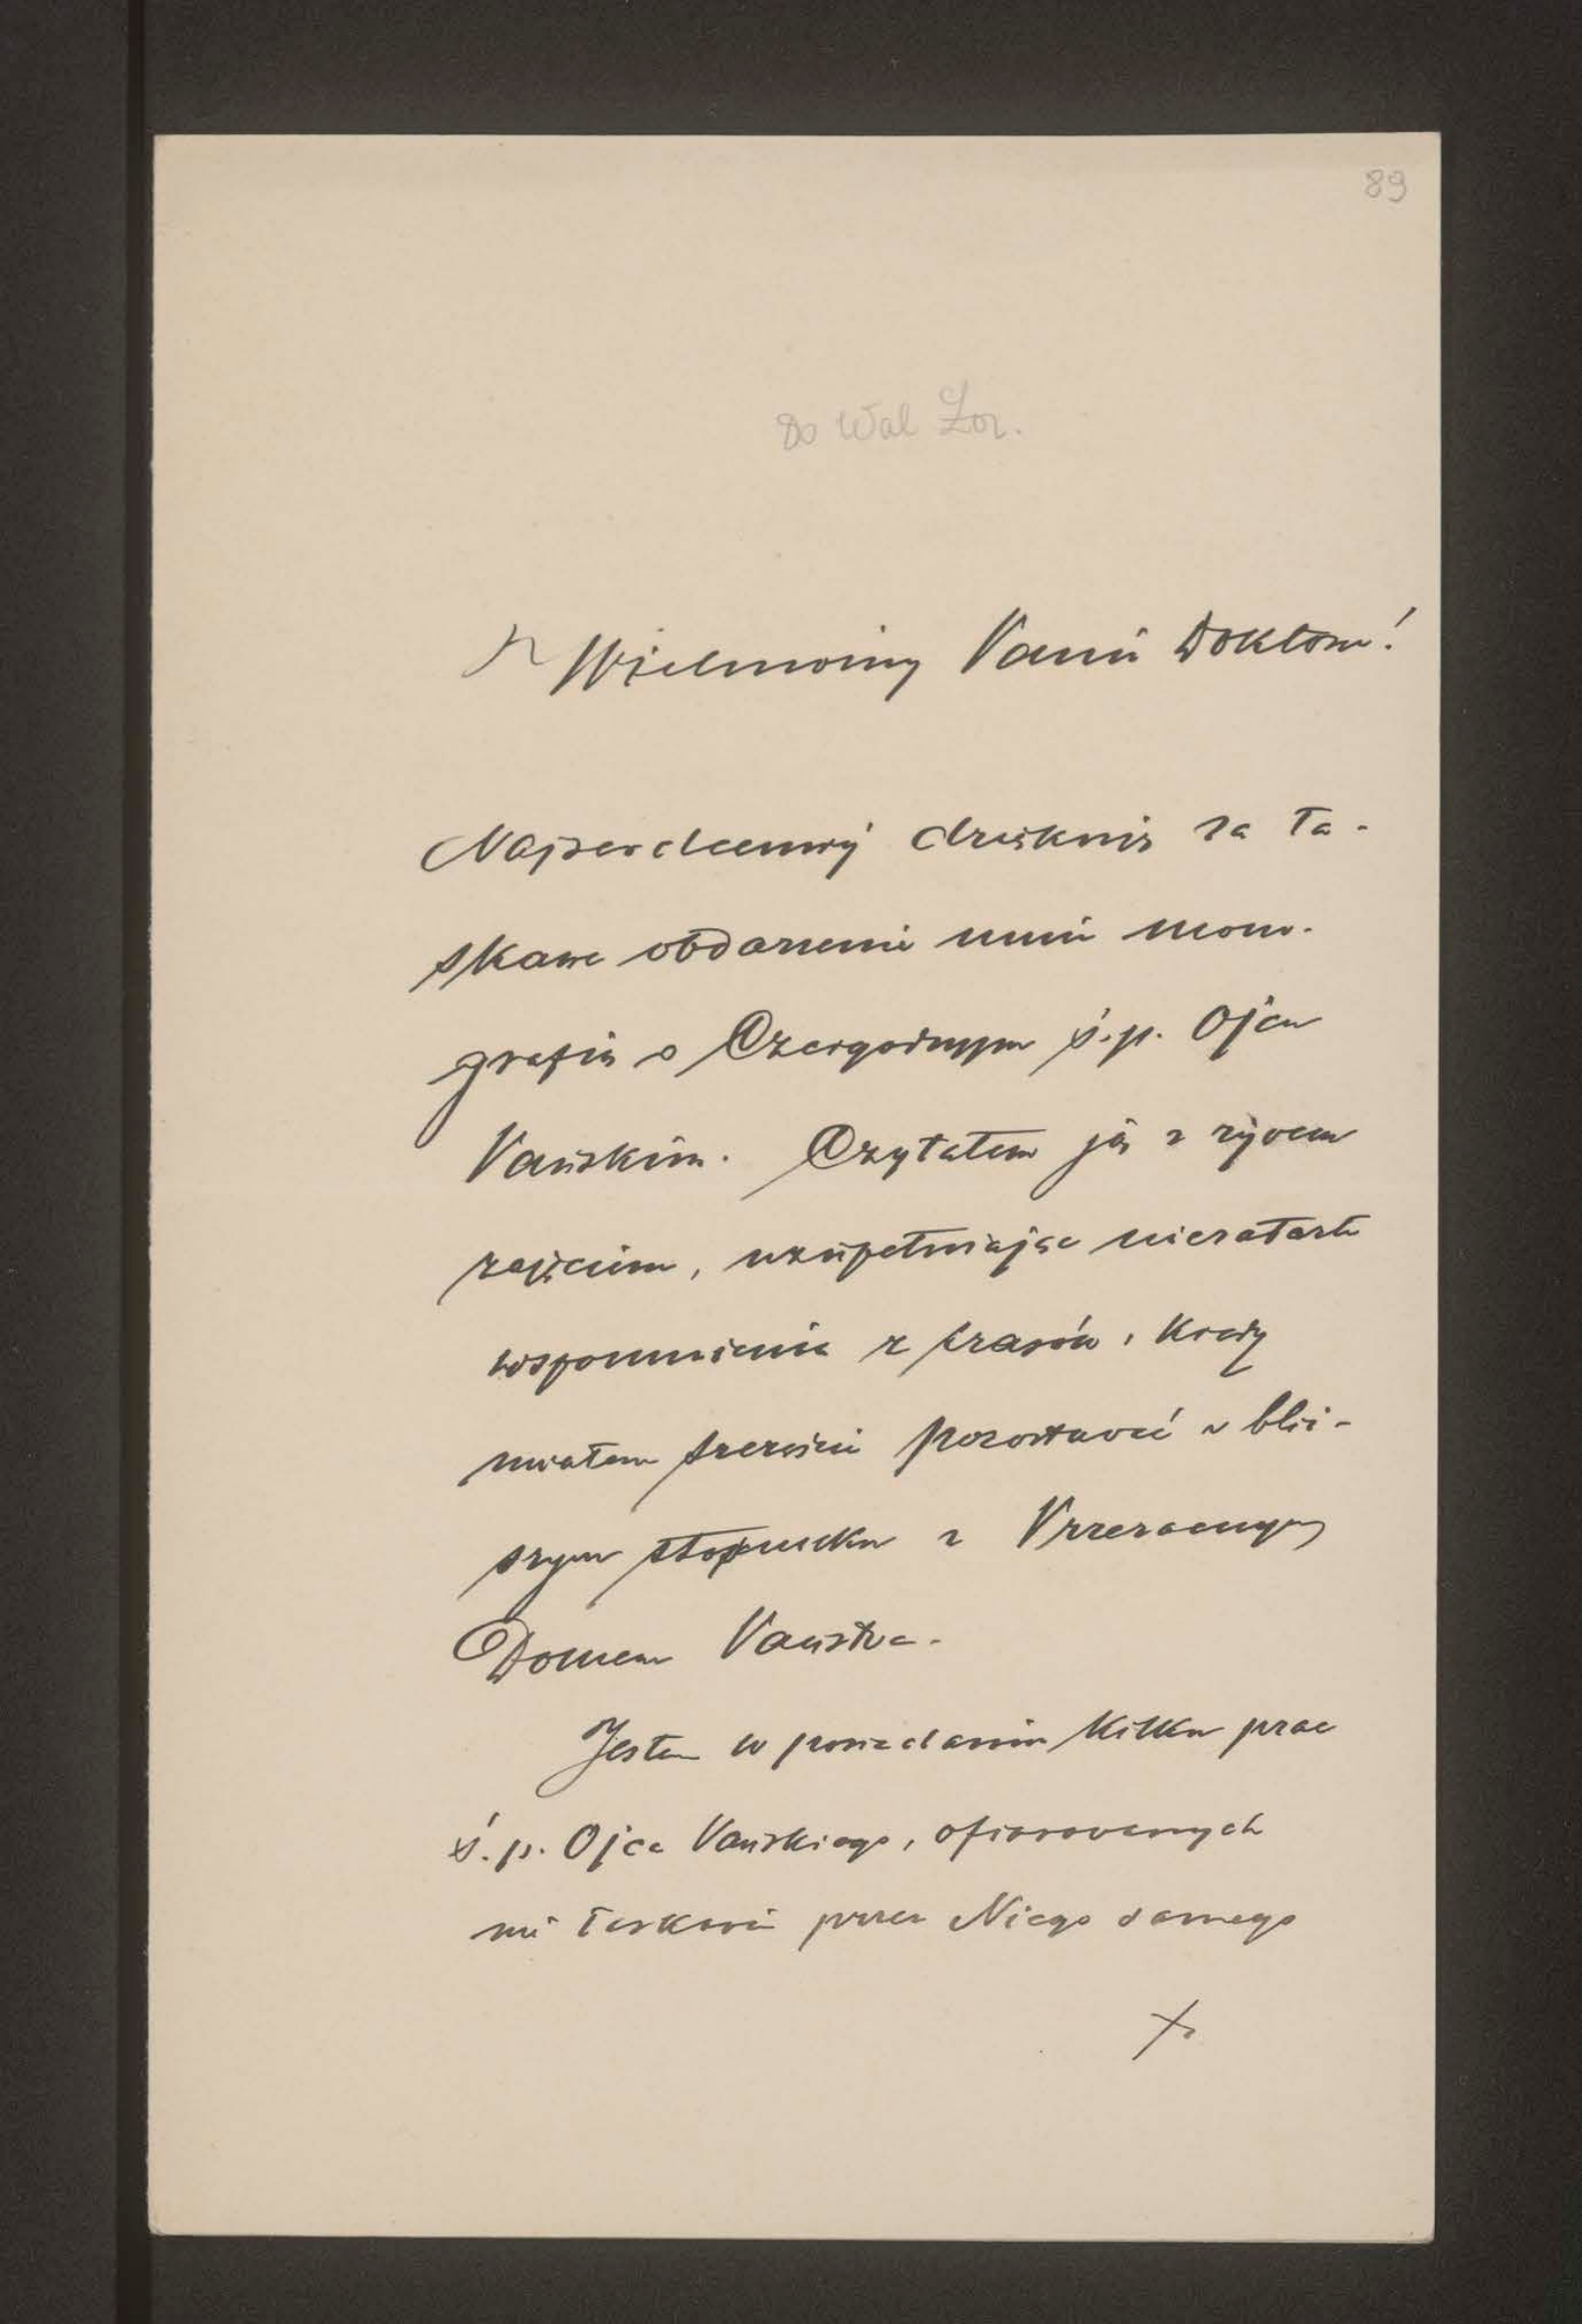 89
Do Wal Łoz.
Wielmożny Panie Doktorze!
Najserdeczniej dziękuję za ła-
skawe obdarzenie mnie mono-
grafią o Czcigodnym ś.p. Ojcu
Pańskim. Czytałem ją z żywem
zajęciem, uzupełniając niezatarte
wspomnienia z czasów, kiedy
miałem szczęście pozostawać w bliż-
szym stosunku z Przezacnym
Domem Państwa.
Jestem w posiadaniu kilku prac
ś.p. Ojca Pańskiego, ofiarowanych
mi łaskawie przez Niego samego